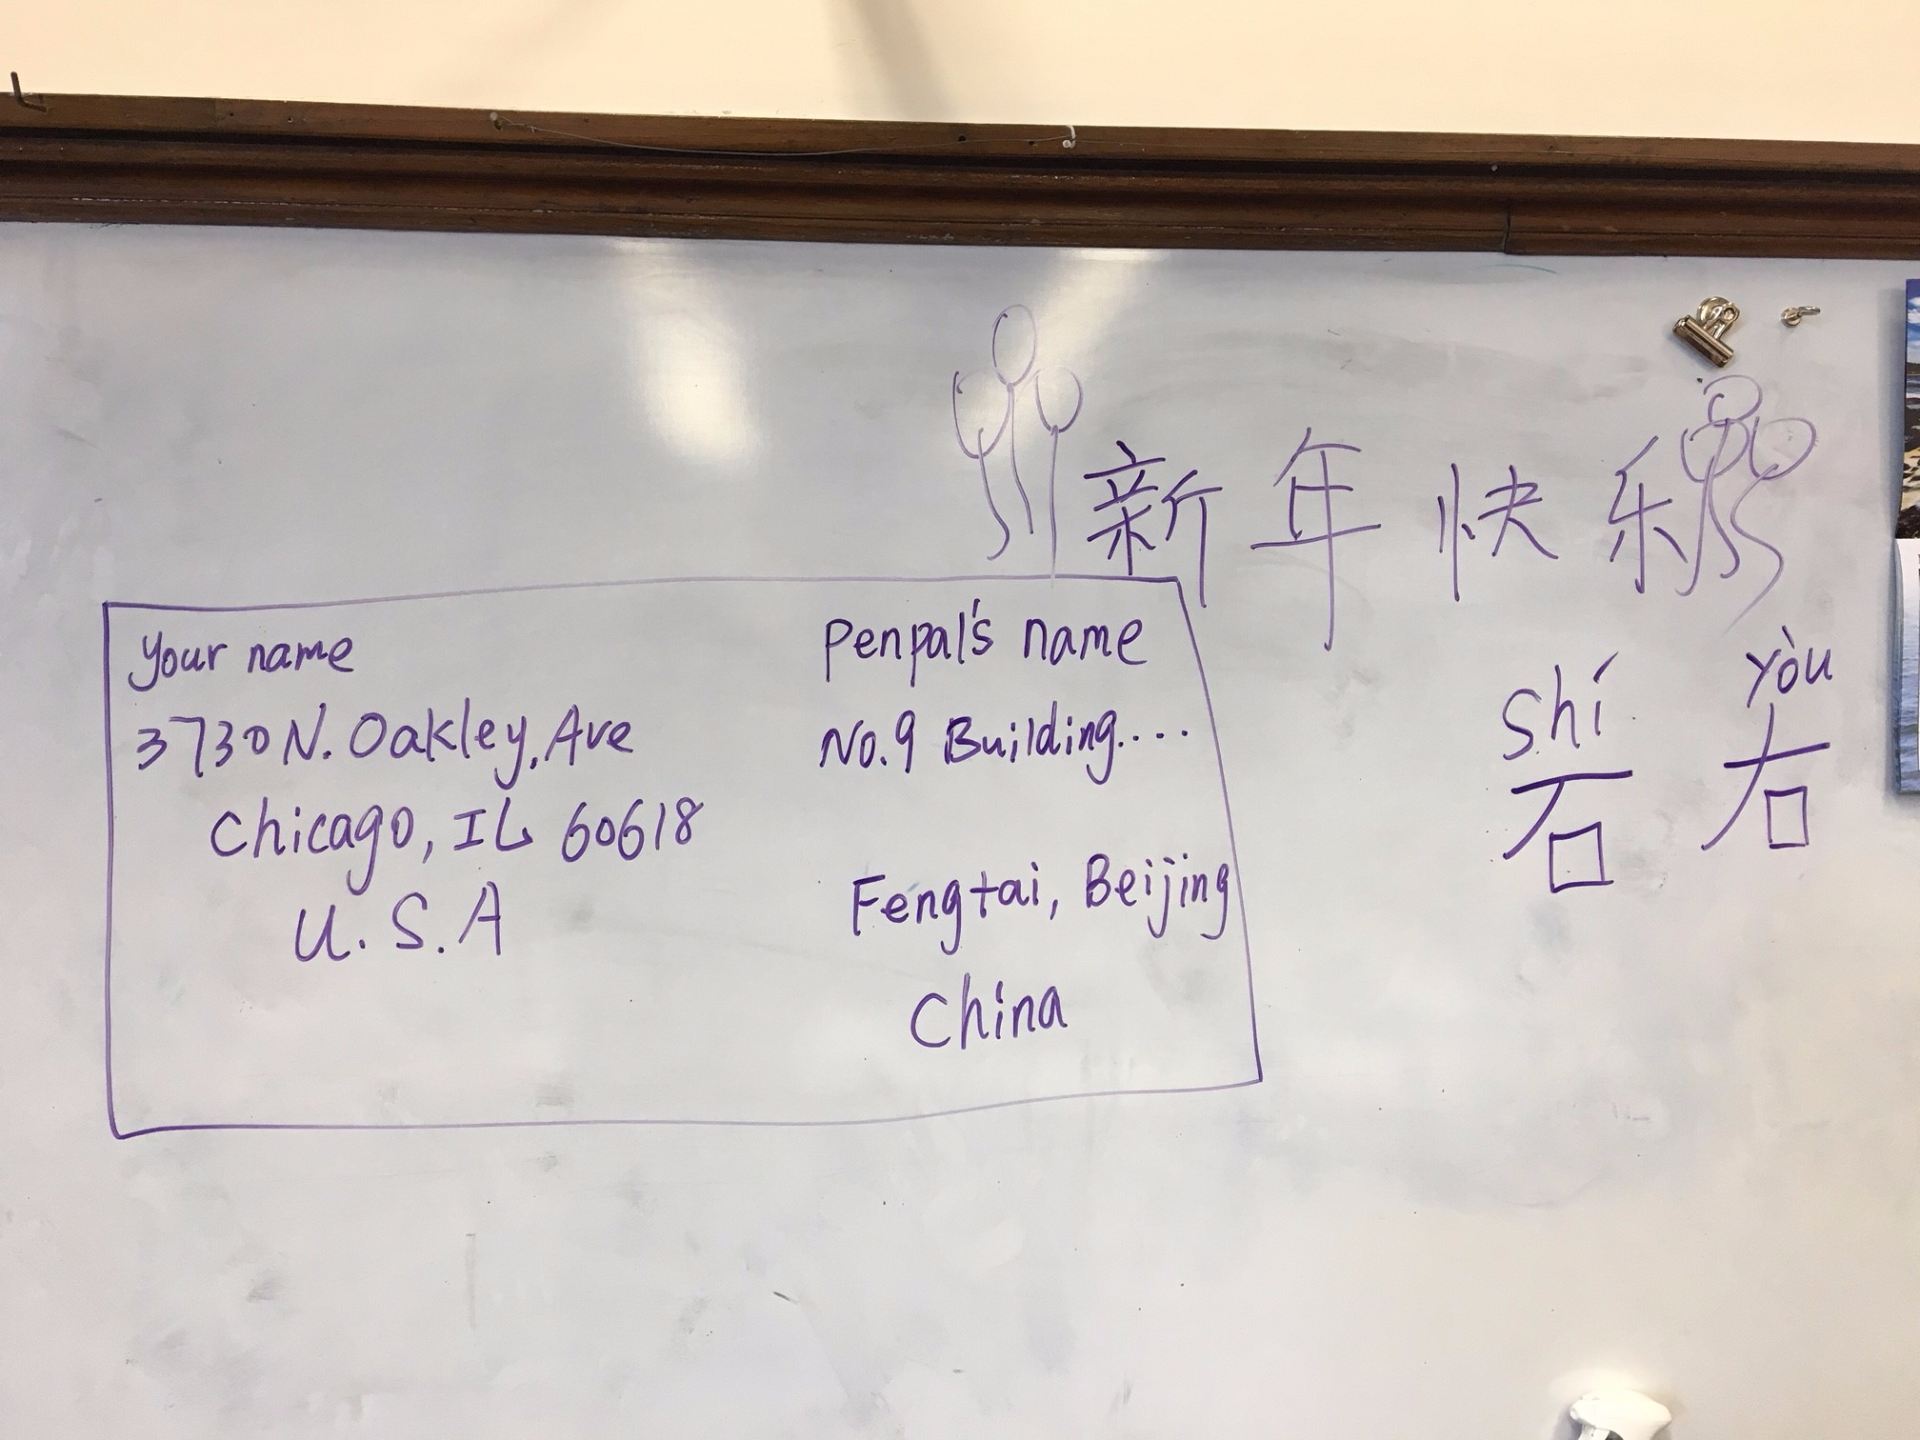 新年快乐
Your name
3730 N. Oakley, Ave
Chicago, IL 60618
U.S.A
Penpal's name
No.9 Building....
Fengtai, Beijing
China
shí yòu
石 右